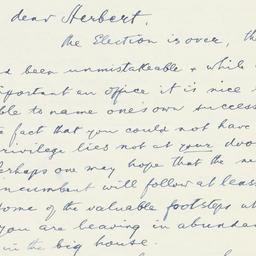 dear Herbert,
The Election is over, th
d been unmistakeable & while
mportant an office it is nice
ble to name one's own success
e fact that you could not have
rivilege lies not at your doo
erhaps one may hope that the ne
ncumbent will follow at leas
ome of the valuable footsteps w
you are leaving in abundan
in the big house.